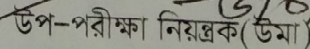 উপ-পরীক্ষা নিয়ন্ত্রক(উমা)